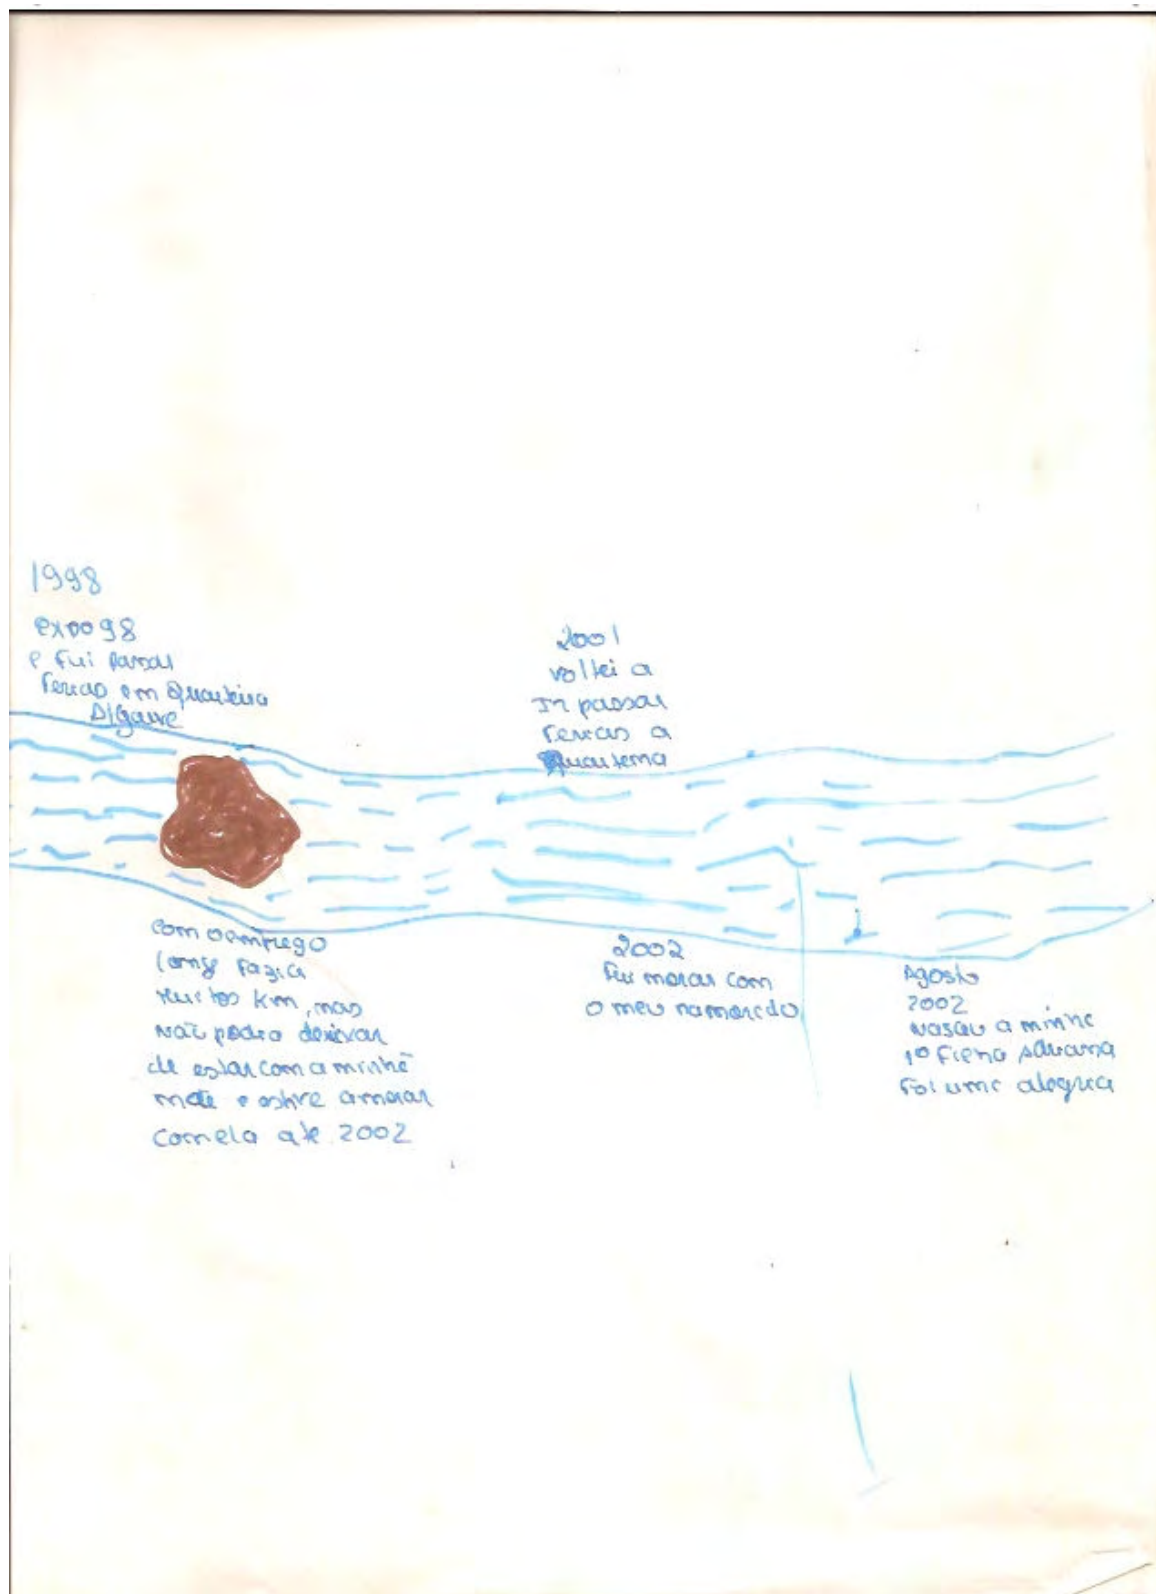 1998
expo98
e fui passar
ferias em Quarteira
Algarve
2001
voltei a
Ir passar
ferias a
Quarteira
com o emprego
longe fazia
muitos km, mas
não podia deixar
de estar com a minhã
mãe e estive a morar
com ela até 2002
2002
fui morar com
o meu namorado
Agosto
2002
nasceu a minha
1º filha Adriana
foi uma alegria